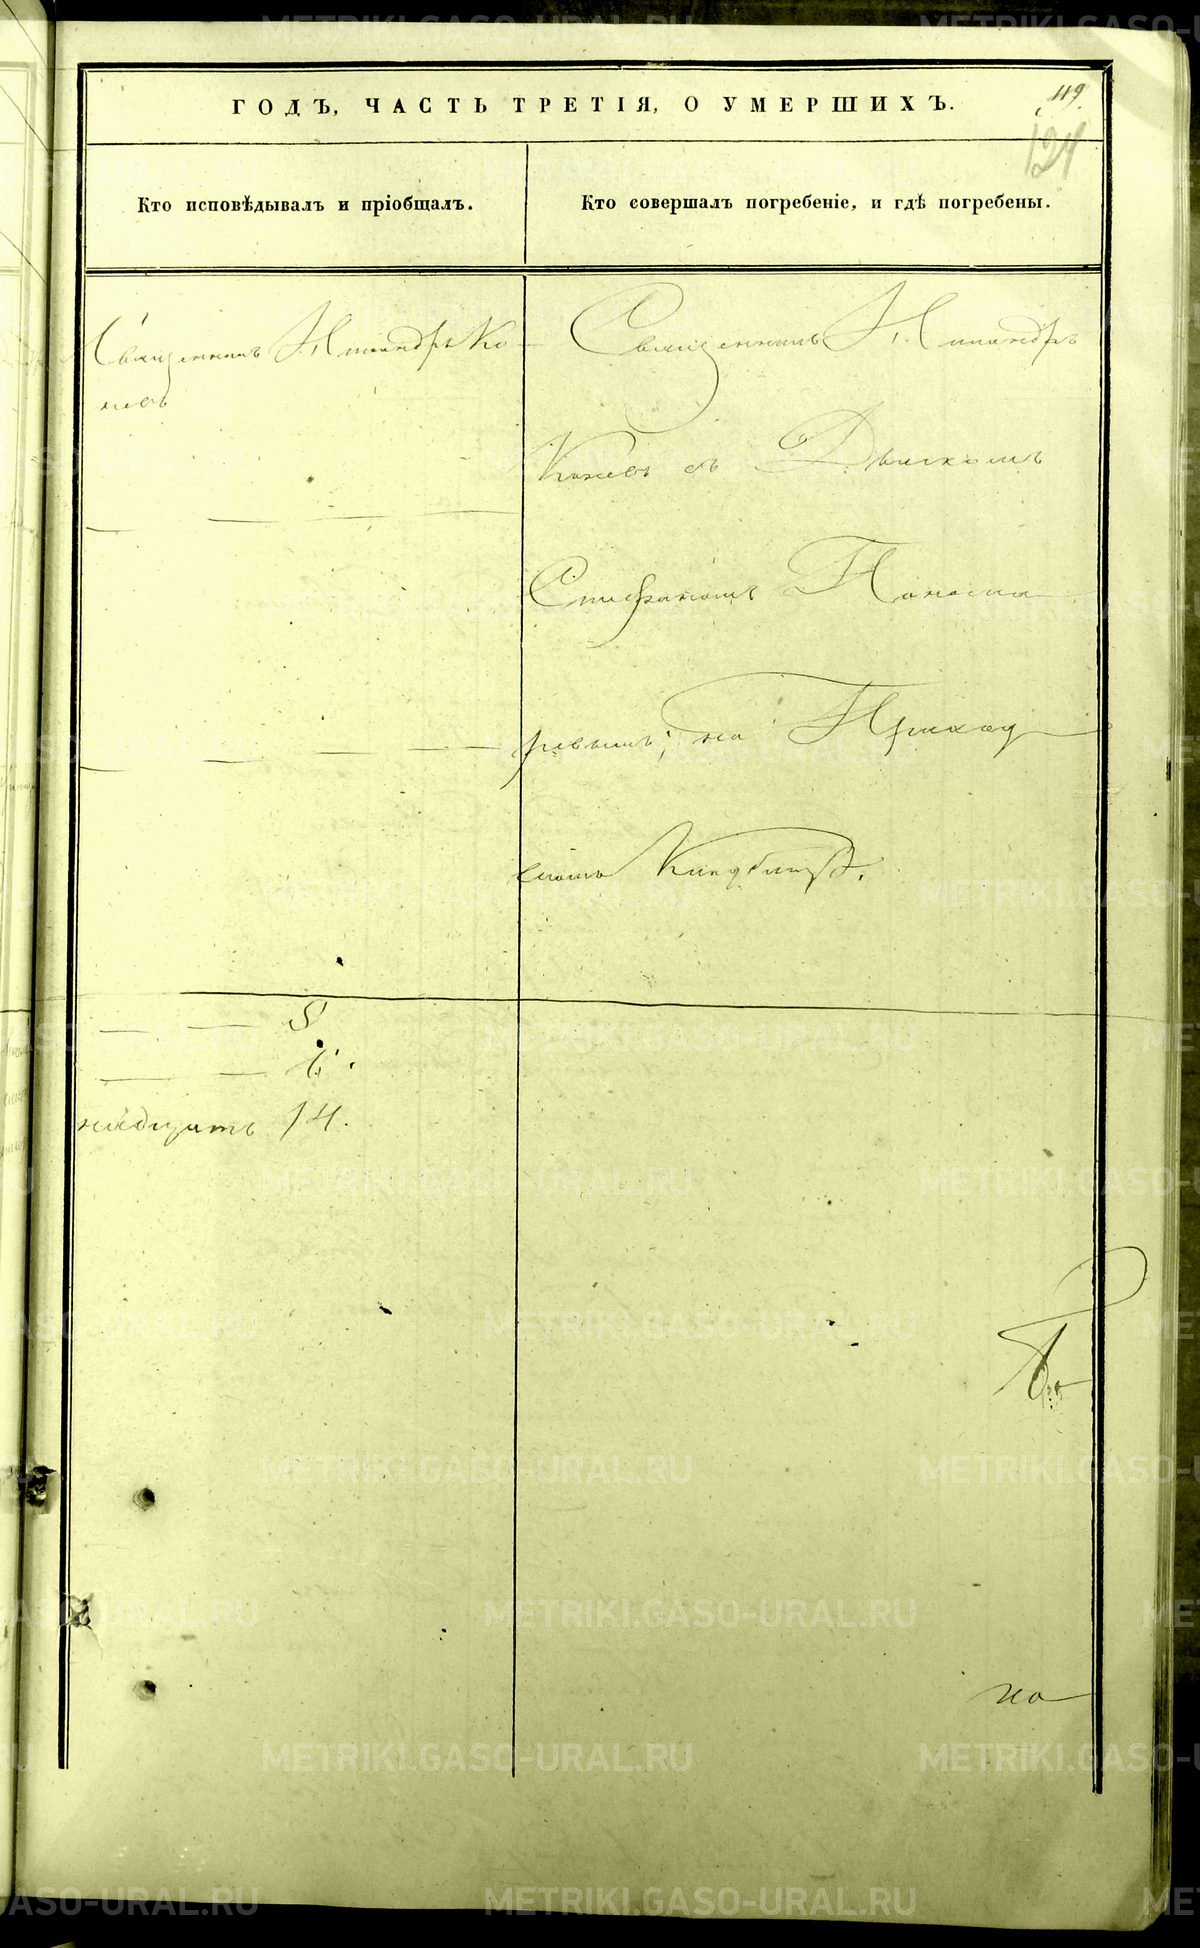 ГОДЪ, ЧАСТЬ ТРЕТІЯ, О УМЕРШИХЪ.
119
124
Кто исповѣдывалъ и пріобщалъ.
Кто совершалъ погребеніе, и гдѣ погребены.
Священникъ Никандръ Ко-
невъ
Священникъ Никандръ
Коневъ съ Дьячкомъ
Стефаномъ Понома
ревымъ; на Приход
скомъ Кладбищѣ.
5
6.
надцать 14.
но
METRIKI.GASO-URAL.RU